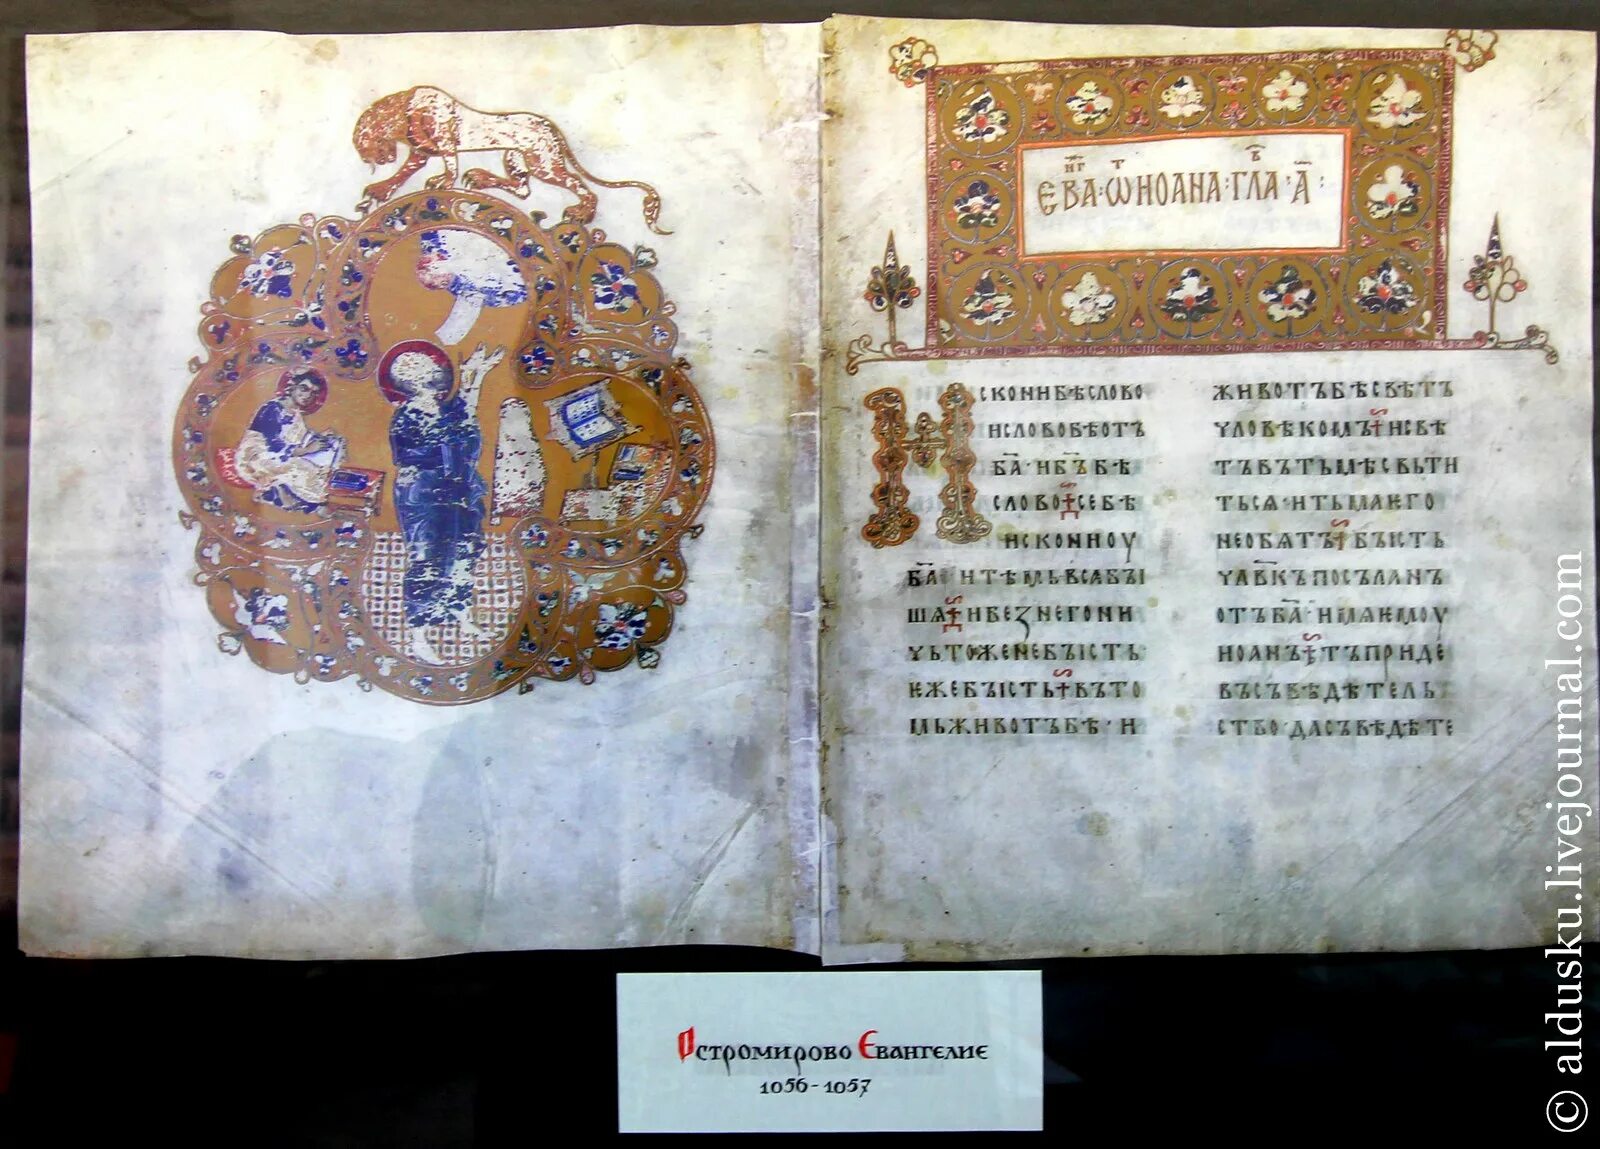 ЕВА҃НГ · Ѡ҃Т ИОАНА · ГЛА҃В · А҃ ·
Искони бѣ слово
и слово бѣ отъ
б҃а · и б҃ъ бѣ
слово ⁘ се бѣ
искони оу
б҃а · и тѣмь вса бы
шѧ ⁘ и без него ни
чьтоже не бысть ·
еже бысть ⁘ въ то
мь животъ бѣ · и
животъ бѣ свѣтъ
чловѣкомъ ⁘ и свѣ
тъ въ тьмѣ свьти
ть сѧ · и тьма ѥго
не обѧтъ ⁘ бысть
чл҃вкъ посъланъ
отъ б҃а · имѧ ѥмоу
иоанъ ⁘ тъ приде
въ съвѣдѣтель
ство · да съвѣдѣте
Остромирово Евангелие
1056-1057
© aldusku.livejournal.com